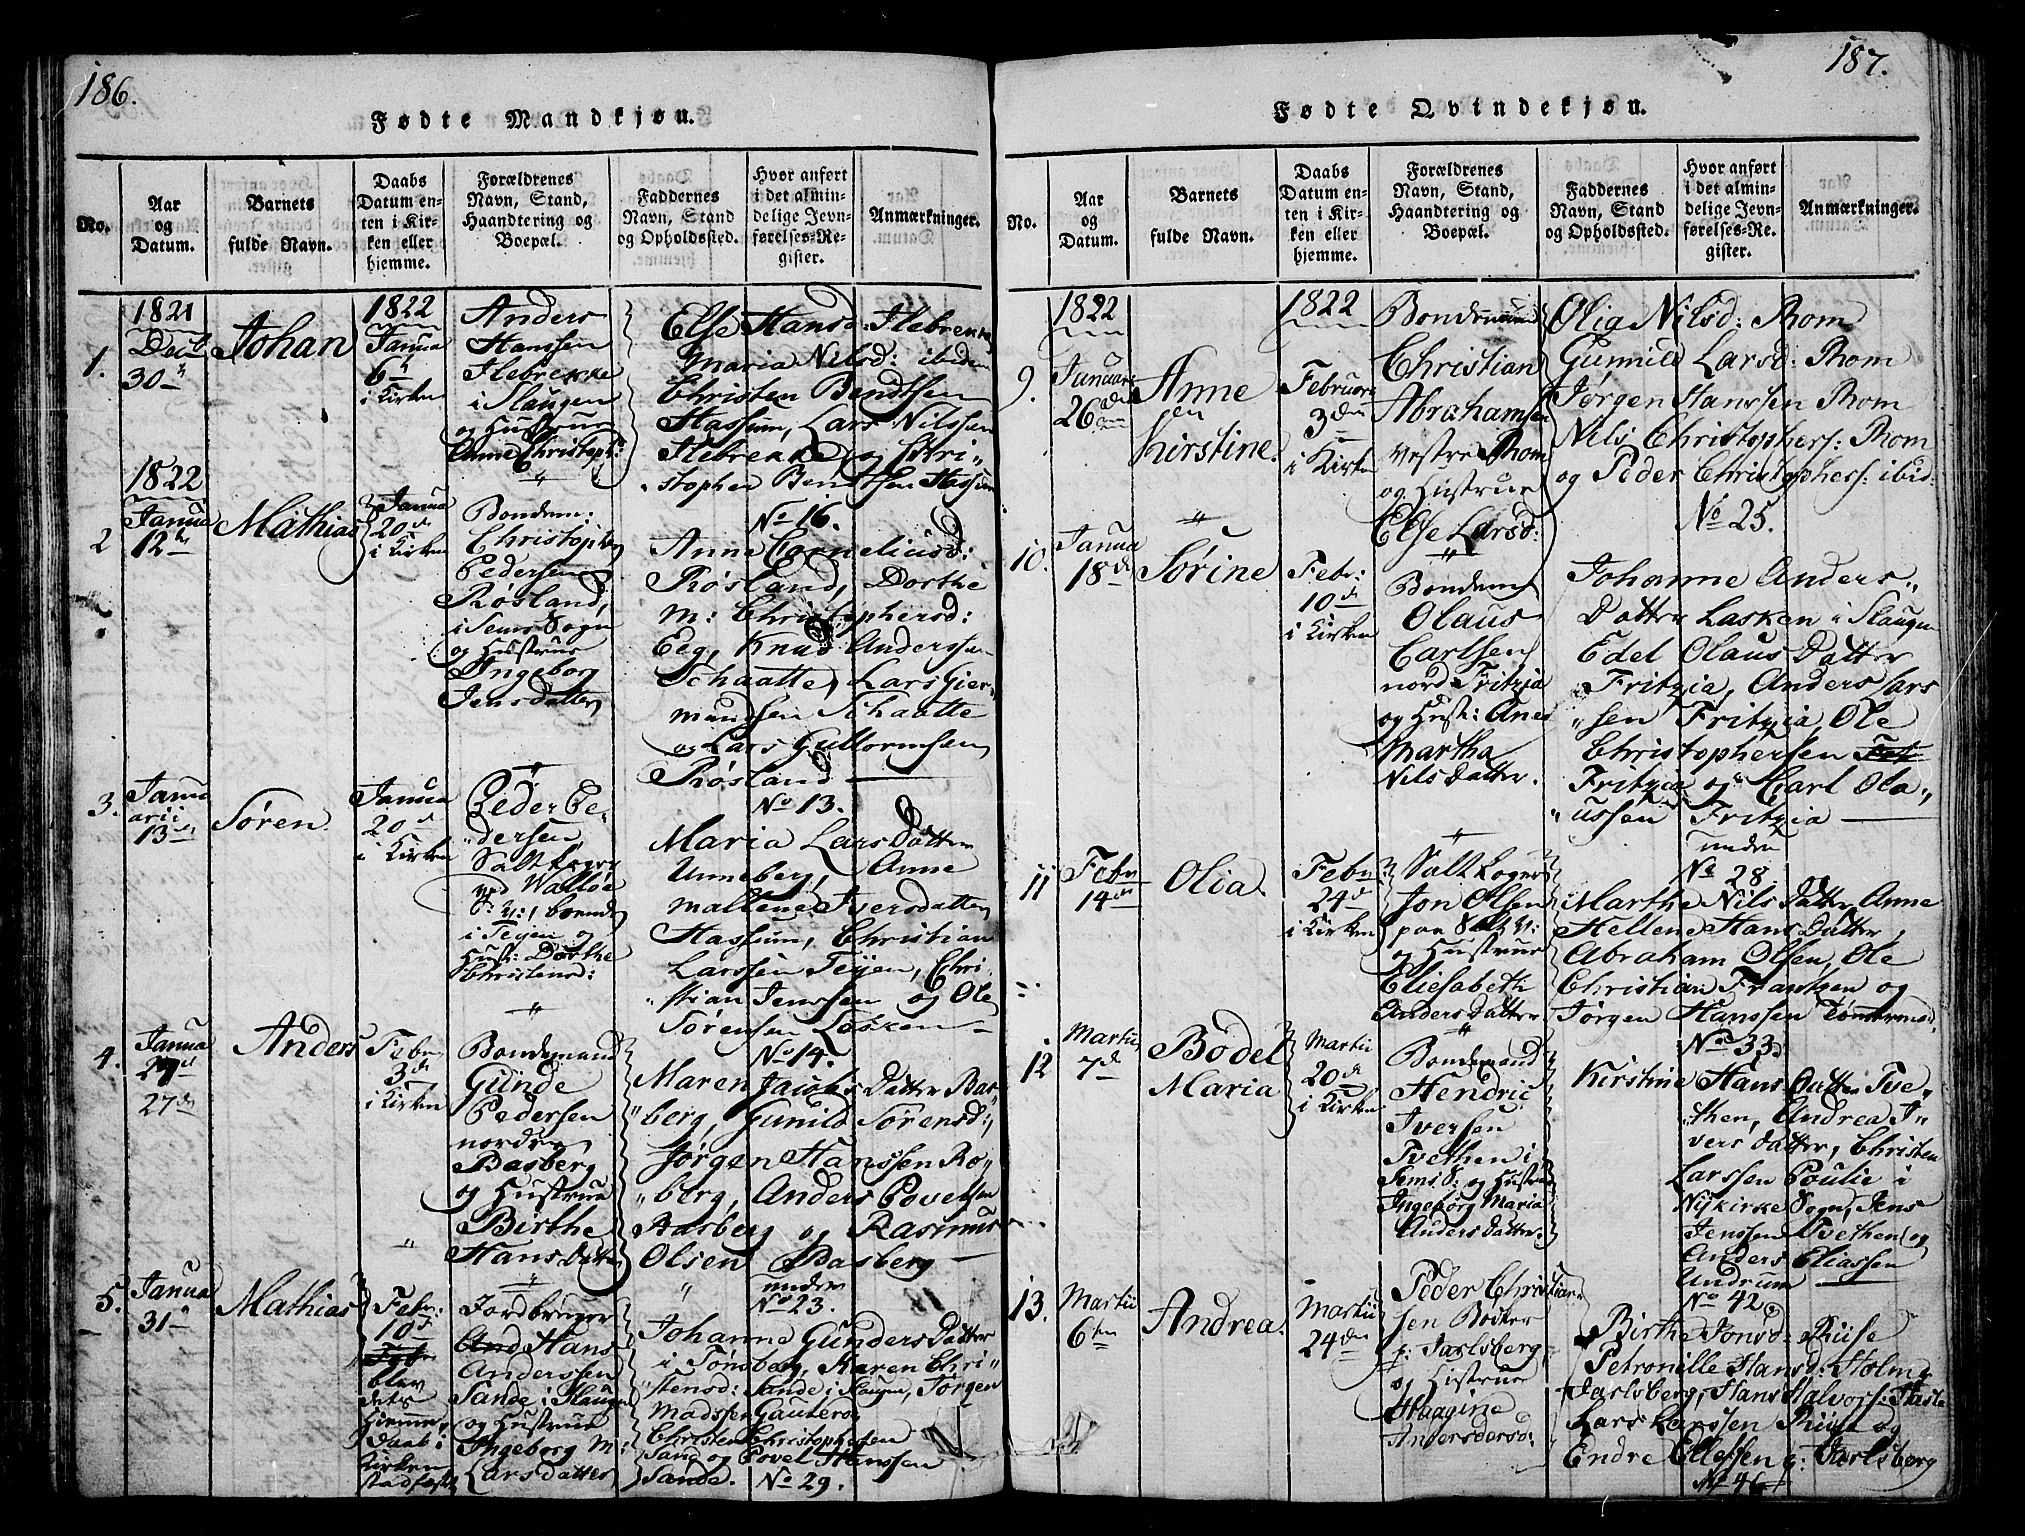 186.
Fødte Mandkjøn.
No.
Aar og Datum.
Barnets fulde Navn.
Daabs Datum enten i Kirken eller hjemme.
Forældrenes Navn, Stand, Haandtering og Boepæl.
Faddernes Navn, Stand og Opholdssted.
Hvor anført i det almindelige Jevnførelses-Register.
Anmærkninger.
1.
1821
Decb
30
Johan
1822
Janua
6
i Kirken
Anders
Hanssen
Ilebrekke
i Slaugen
og Hustrue
Anne Christoph:
Else Hansd: Ilebrekke,
Maria Nilsd: ibidem
Christen Bendtsen
Hassum, Lars Nilssen
Ilebrekke og Chri„
stopher Bentsen Hassum
No 16.
2
1822
Janua
12
Mathias
Janua
20 d
i Kirken
Bondem:
Christopher
Pedersen
Røsland,
i Sems Sogn
og Hustrue
Ingeborg
Jensdatter
Anne Corneliusd:
Røsland, Dorthe
M: Christophersd:
Eeg, Knud Anderssen
Schaatte, Lars Gier„
mundsen Schaatte
og Lars Guttormsen
Røsland
No 13.
3.
Janu
arii
13
Søren
Janua
20 d
i Kirken
Peder Pe„
dersen,
Saltkoger
ved Walløe
boende
i Teijen og
Hust: Dorthe
Christensd:
Maria Lars Datter
Unneberg, Anne
Mallene Iversdatter
Hassum, Christian
Larssen Teijen, Chri„
stian Jenssen og Ole
Sørensen Løsken
No 14.
4.
Janua
27 d
Anders
Febr
3 d
i Kirken
Bondemand
Gunde
Pedersen
nordre
Basberg
og Hustrue
Birthe
Hans Datter
Maren Jacobs Datter Bas„
berg, Gunild Sørensd:,
Jørgen Hanssen Ro„
berg, Anders Povelsen
Aasberg og Rasmus
Olsen Basberg
under
No 23.
5.
Janua
31
Mathias
Febr:
10 d
blev
dets
Hjemme
Daab i
Kirken
stadfæst
Jordbruger
Hans
Anderssen
Sande i Slaugen
og Hustrue
Ingeborg M:
Larsdatter
Johanne Gunders Datter
i Tønsberg, Karen Chri„
stensd: Sande i Slaugen, Jørgen
Madssen Gauterø,
Christen Christophersen
Sand og Povel Hanssen
Sande.
No 29.
187.
Fødte Qvindekjøn.
No.
Aar og Datum.
Barnets fulde Navn.
Daabs Datum enten i Kirken eller hjemme.
Forældrenes Navn, Stand, Haandtering og Boepæl.
Faddernes Navn, Stand og Opholdssted.
Hvor anført i det almindelige Jevnførelses-Register.
Anmærkninger.
9.
1822
Januarii
26 den
Anne
Kirstine.
1822
Februarii
3 den
i Kirken
Christian
Abrahamsen
Vestre Rom
og Hustrue
Else Larsd:
Olia Nilsd: Rom
Gunnild Larsd: Rom
Jørgen Hanssen Rom
Nils Christophers: Rom
og Peder Christophers: ibid:
No 25.
10.
Janua
18 d
Sørine
Febr:
10 d
i Kirken
Bondem
Olaus
Carlsen
nord Fritzja
og Hust: Anes
Martha
Nils Datter.
Johanne Anders„
Datter Lasken i Slaugen
Edel Olaus Datter
Fritzja, Anders Lars
„sen Fritzja, Ole
Christophersen
Fritzja og Carl Ola„
„ussen Fritzja
under
No 28
11
Febr
14 d
Olia.
Febr
24 d
i Kirken
Saltkoger
Jon Olsen
paa Saltv:
og Hustrue
Eliesabeth
Anders Datter
Marthe Nils Datter, Anne
Hellene Hans Datter,
Abraham Olsen, Ole
Christian Frantzen og
Jørgen Hanssen Tømmermd.
No 33
12
Martii
7 d
Bodel
Maria
Martii
20 d
i Kirken
Bondemand
Hendric
Iversen
Tvethen i
Sems S: og Hustrue
Ingeborg Maria
Anders Datter.
Kirstine Hans Datter Tve„
then, Andrea I„
vers Datter, Christen
Larssen Poulie i
Nykirke Sogn, Jens
Jenssen Tvethen og
Anders Eliassen
Undrum
No 42
13.
Martii
6 ten
Andrea.
Martii
24 den
Peder Christian„
sen Bødker
p: Jarlsberg,
og Hustrue
Haagine
Andersdersd:
Birthe Jonsd:
Petronille Hansd: Holm
Jarlsberg, Hans Halvors:
Lars Larssen og
Endre Ellefsen p: Jarlsberg
No 46